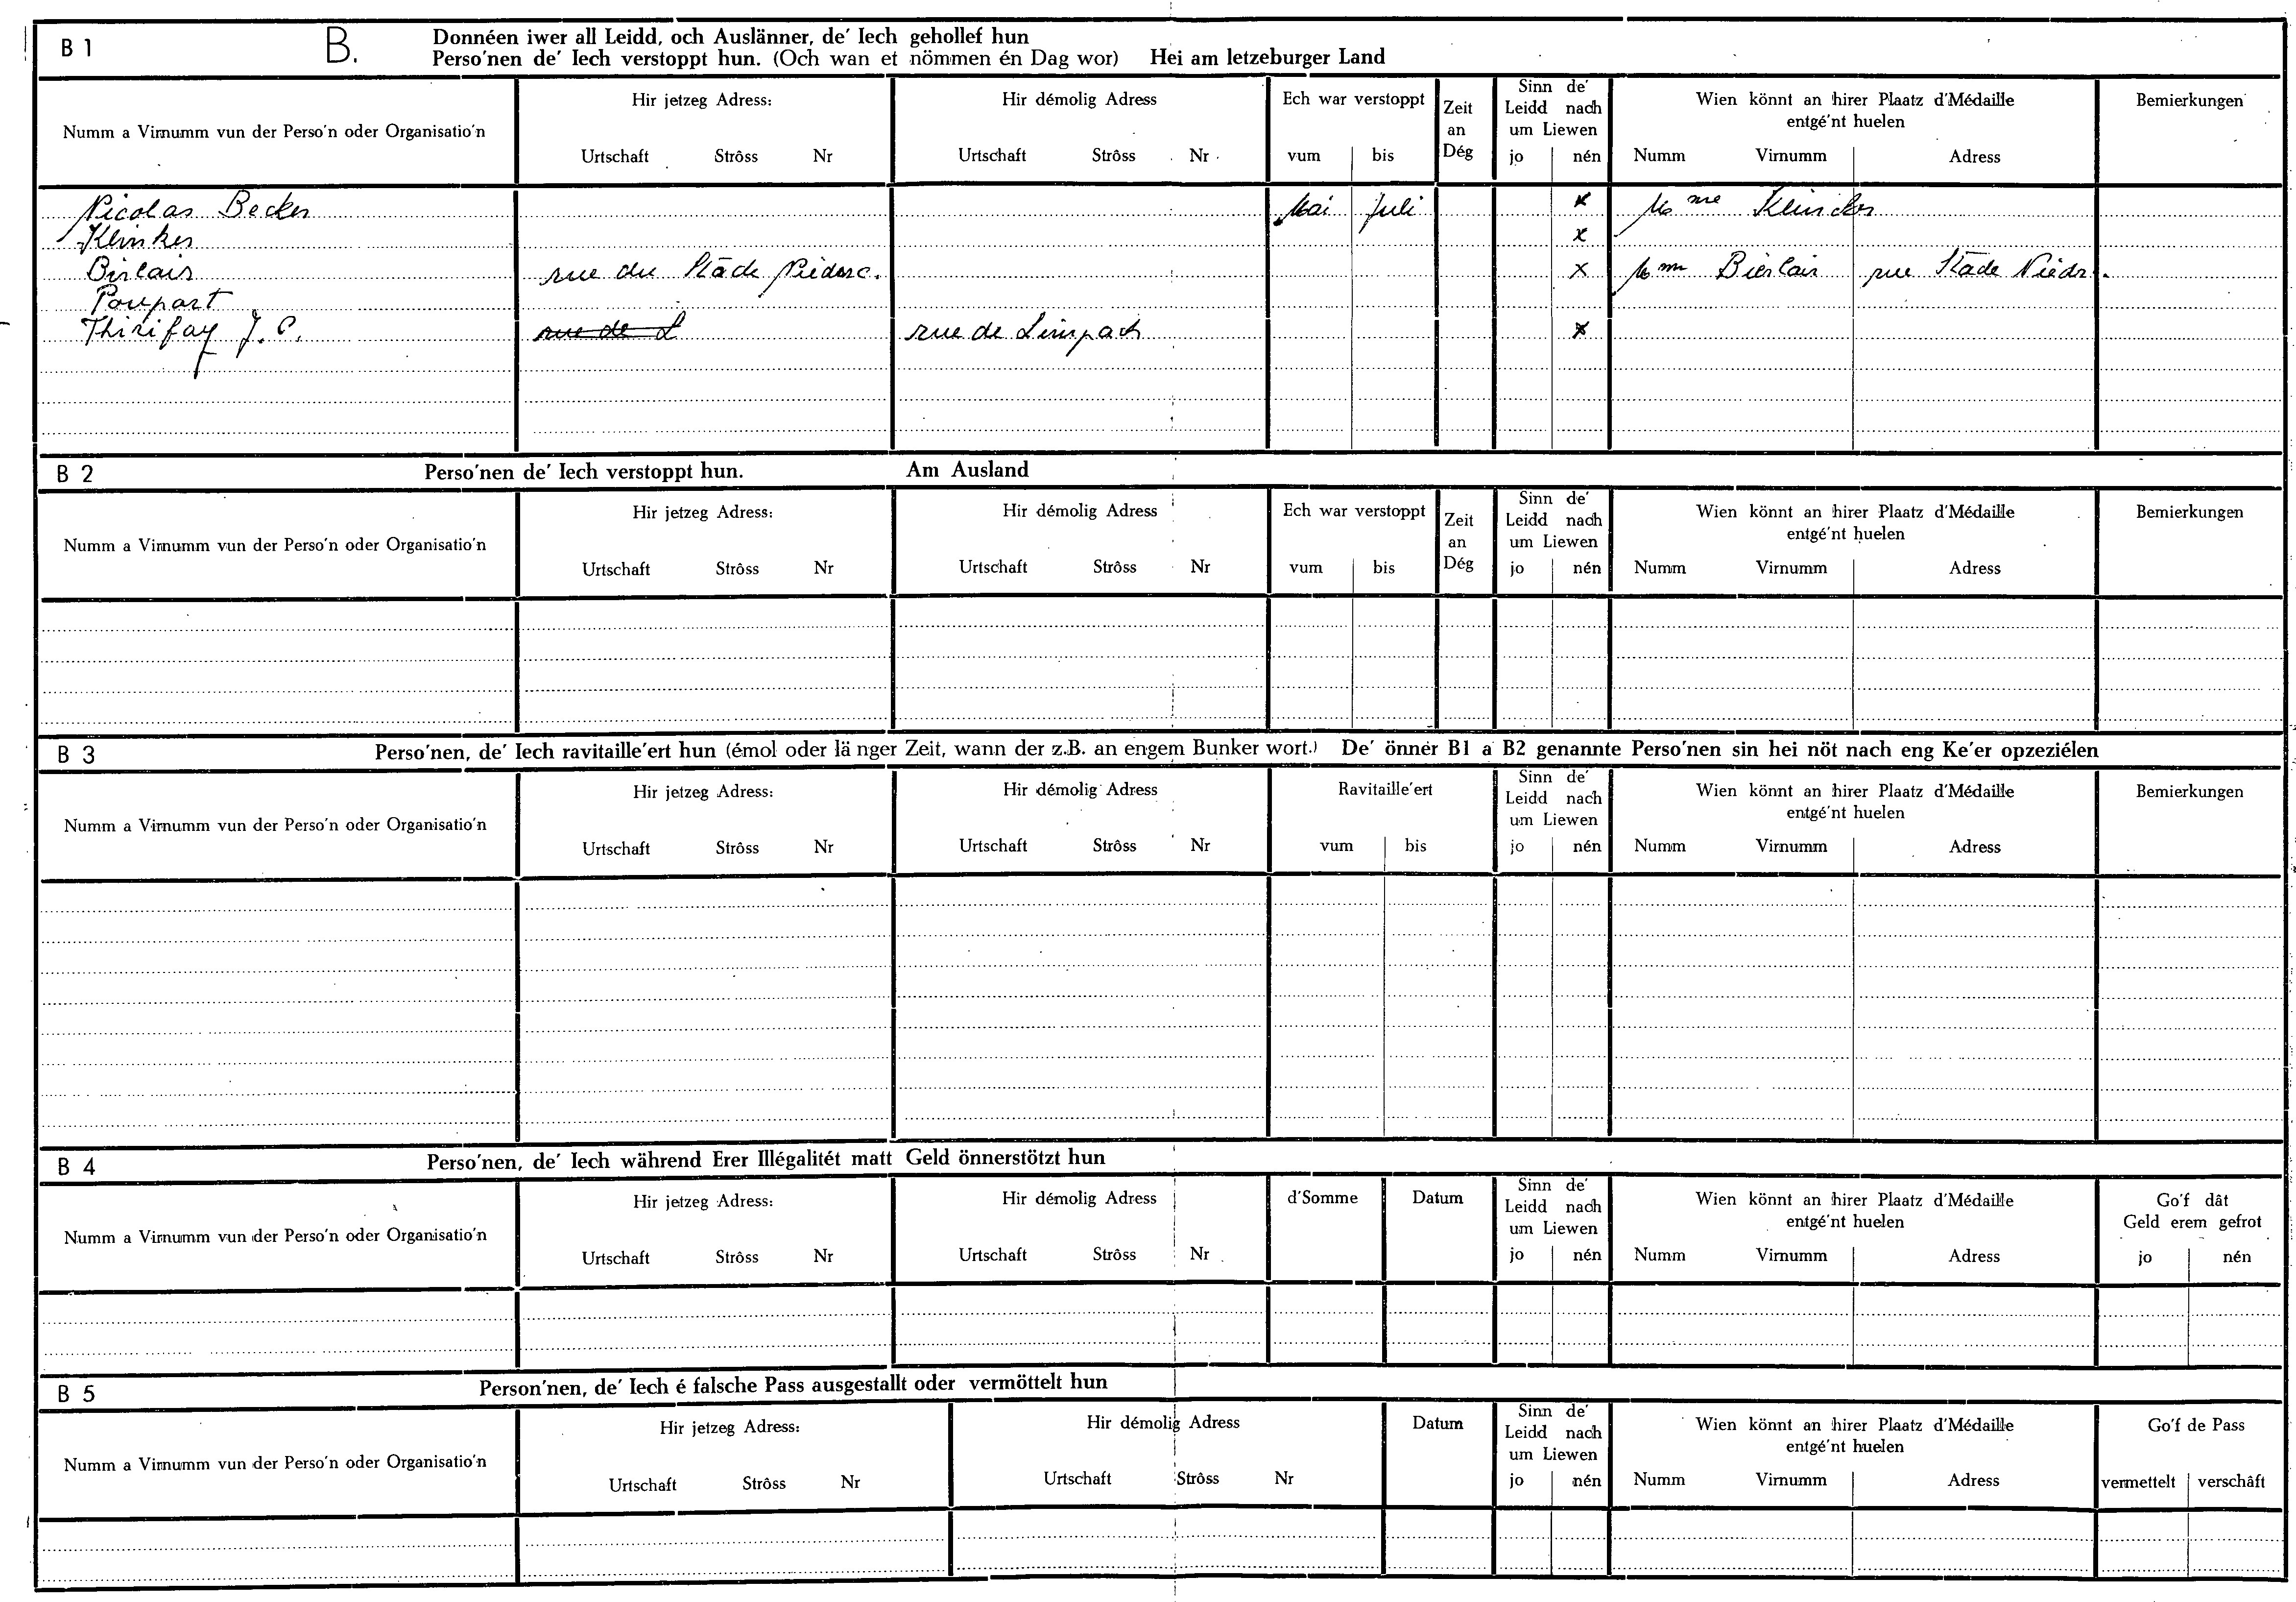 B 1 B. Donnéen iwer all Leidd, och Auslänner, de' Iech gehollef hun
Perso'nen de' Iech verstoppt hun. (Och wan et nömmen én Dag wor) Hei am letzeburger Land
Numm a Virnumm vun der Perso'n oder Organisatio'n
Hir jetzeg Adress:
Urtschaft Strôss Nr
Hir démolig Adress
Urtschaft Strôss Nr
Ech war verstoppt
vum bis
Zeit
an
Dég
Sinn de'
Leidd nach
um Liewen
jo nén
Wien könnt an hirer Plaatz d'Médaille
entgé'nt huelen
Numm Virnumm Adress
Bemierkungen
Nicolas Becker Mai Juli x Mme Klincker
Klinker x
Birlair rue du Stade Niederc. x Mme Bierlair rue Stade Niedr.
Poupart
Thirifay J.P. rue de L rue de Limpach x
B 2 Perso'nen de' Iech verstoppt hun. Am Ausland
Numm a Virnumm vun der Perso'n oder Organisatio'n
Hir jetzeg Adress:
Urtschaft Strôss Nr
Hir démolig Adress
Urtschaft Strôss Nr
Ech war verstoppt
vum bis
Zeit
an
Dég
Sinn de'
Leidd nach
um Liewen
jo nén
Wien könnt an hirer Plaatz d'Médaille
entgé'nt huelen
Numm Virnumm Adress
Bemierkungen
B 3 Perso'nen, de' Iech ravitaille'ert hun (émol oder länger Zeit, wann der z.B. an engem Bunker wort.) De' önner B1 a B2 genannte Perso'nen sin hei nöt nach eng Ke'er opzeziélen
Numm a Virnumm vun der Perso'n oder Organisatio'n
Hir jetzeg Adress:
Urtschaft Strôss Nr
Hir démolig Adress
Urtschaft Strôss Nr
Ravitaille'ert
vum bis
Sinn de'
Leidd nach
um Liewen
jo nén
Wien könnt an hirer Plaatz d'Médaille
entgé'nt huelen
Numm Virnumm Adress
Bemierkungen
B 4 Perso'nen, de' Iech während Erer Illégalitét matt Geld önnerstötzt hun
Numm a Virnumm vun der Perso'n oder Organisatio'n
Hir jetzeg Adress:
Urtschaft Strôss Nr
Hir démolig Adress
Urtschaft Strôss Nr
d'Somme
Datum
Sinn de'
Leidd nach
um Liewen
jo nén
Wien könnt an hirer Plaatz d'Médaille
entgé'nt huelen
Numm Virnumm Adress
Go'f dât
Geld erem gefrot
jo nén
B 5 Person'nen, de' Iech é falsche Pass ausgestallt oder vermöttelt hun
Numm a Virnumm vun der Perso'n oder Organisatio'n
Hir jetzeg Adress:
Urtschaft Strôss Nr
Hir démolig Adress
Urtschaft Strôss Nr
Datum
Sinn de'
Leidd nach
um Liewen
jo nén
Wien könnt an hirer Plaatz d'Médaille
entgé'nt huelen
Numm Virnumm Adress
Go'f de Pass
vermettelt verschâft